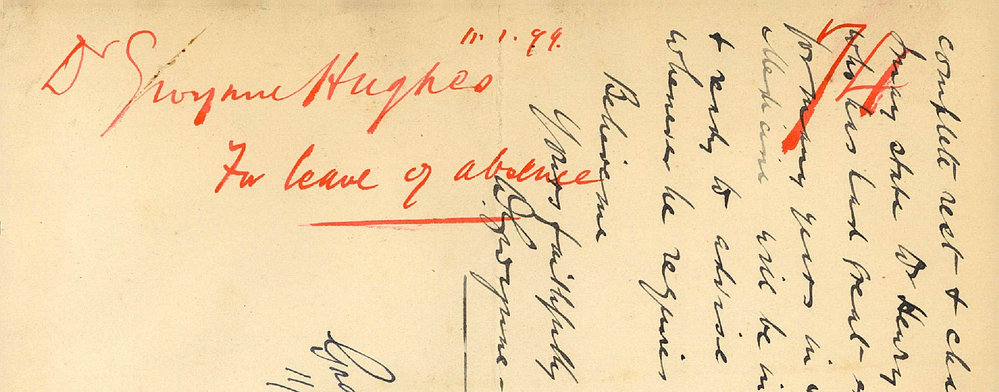 11.1.99.
Dr Gwynne Hughes
For leave of absence
74
complete rest & cha
I may state Dr Henry
who has had great
for many years in
Medicine will be in
& ready to advise
whenever he requires
Believe me
Yours faithfully
W Gwynne-
Gra
11/